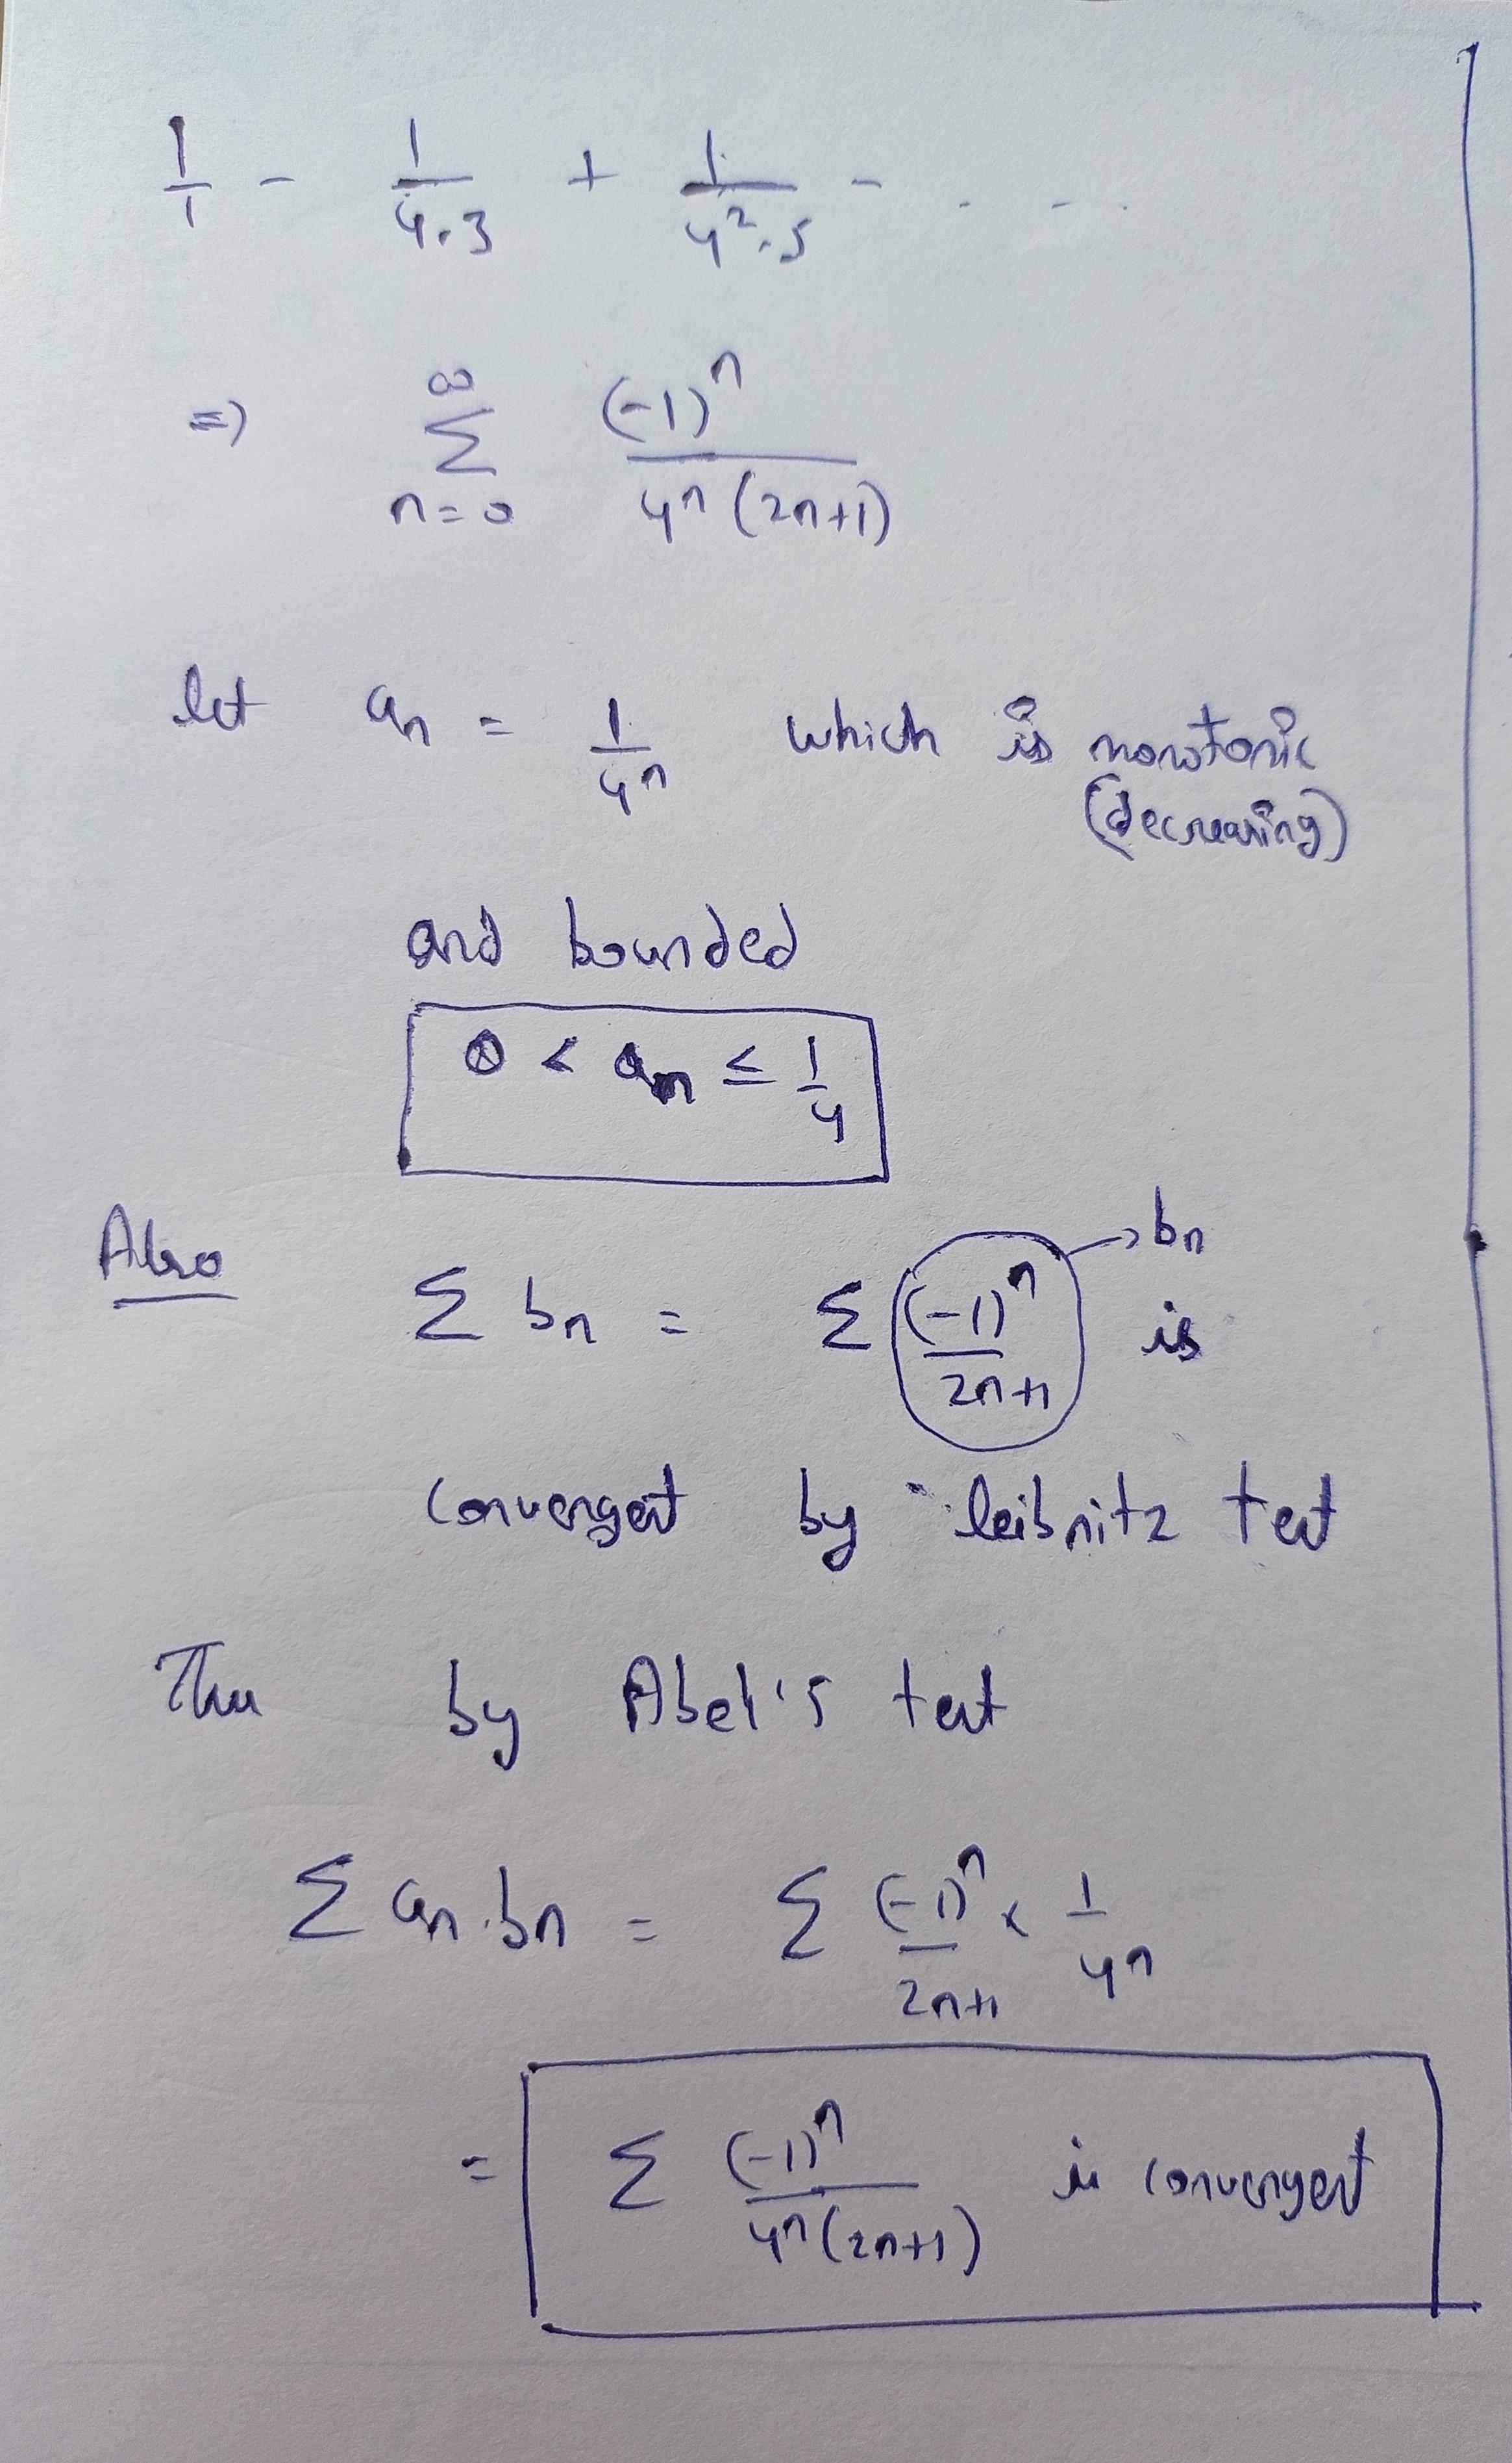 1/1 - 1/4.3 + 1/4².5 - . . .
=) ∞ Σ n=0 (-1)ⁿ / 4ⁿ(2n+1)
let aₙ = 1/4ⁿ which is monotonic
(decreasing)
and bounded
0 < aₙ ≤ 1/4
→ bₙ
Also Σ bₙ = Σ (-1)ⁿ / 2n+1 is
convergent by leibnitz test
Thus by Abel's test
Σ aₙ.bₙ = Σ (-1)ⁿ / 2n+1 × 1/4ⁿ
= Σ (-1)ⁿ / 4ⁿ(2n+1) is convergent